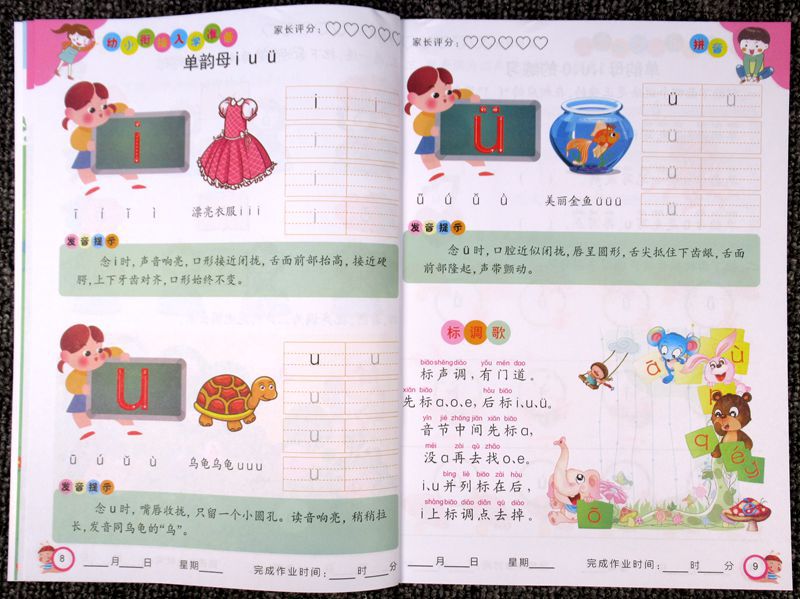 幼小衔接入学准备
家长评分:♡♡♡♡♡
单韵母 i u ü
i
i i
i
i
i
ī í ǐ ì
漂亮衣服 i i i
发音提示
念 i 时,声音响亮,口形接近闭拢,舌面前部抬高,接近硬
腭,上下牙齿对齐,口形始终不变。
u
u u
u
u
u
ū ú ǔ ù
乌龟乌龟 u u u
发音提示
念 u 时,嘴唇收拢,只留一个小圆孔。读音响亮,稍稍拉
长,发音同乌龟的“乌”。
8
____月____日 星期____ 完成作业时间:____时____分
家长评分:♡♡♡♡♡
拼音
ü
ü ü
ü
ü
ü
ǖ ǘ ǚ ǜ
美丽金鱼 ü ü ü
发音提示
念 ü 时,口腔近似闭拢,唇呈圆形,舌尖抵住下齿龈,舌面
前部隆起,声带颤动。
标调歌
biāo shēng diào yǒu mén dao
标声调,有门道。
xiān biāo hòu biāo
先标a、o、e,后标i、u、ü。
yīn jié zhōng jiān xiān biāo
音节中间先标a,
méi zài qù zhǎo
没a再去找o、e。
bìng liè biāo zài hòu
i、u并列标在后,
shàng biāo diào diǎn qù diào
i上标调点去掉。
ā
ù
q
é
ý
ō
____月____日 星期____ 完成作业时间:____时____分
9